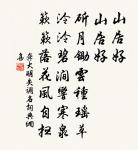 山居好
山居好
斫月鋤雲種瑤草
泠泠碧澗響寒泉
簌簌落花風自掃